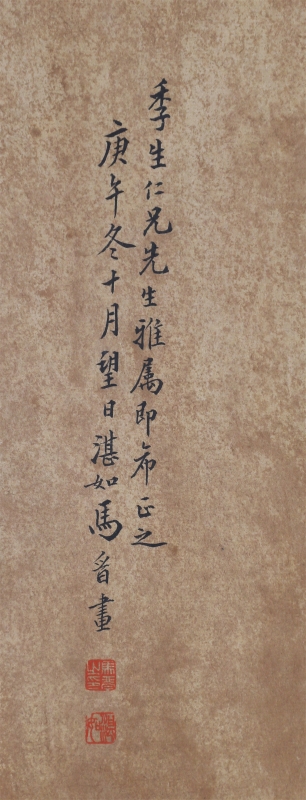 季生仁兄先生雅属即希正之
庚午冬十月望日湛如馬晋畫